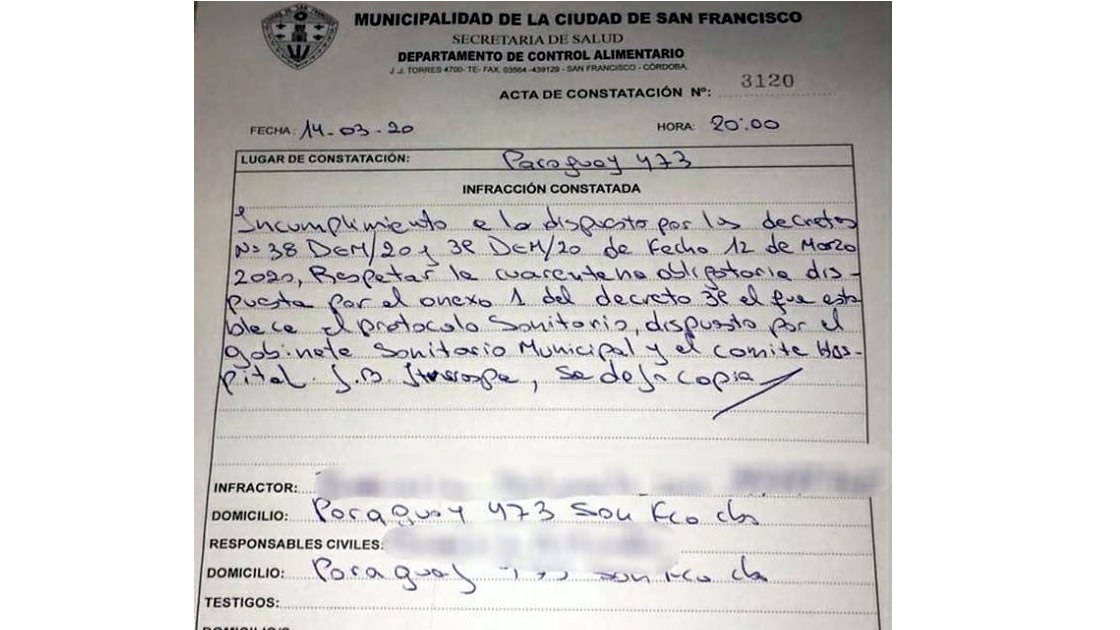 MUNICIPALIDAD DE LA CIUDAD DE SAN FRANCISCO
SECRETARIA DE SALUD
DEPARTAMENTO DE CONTROL ALIMENTARIO
J. J. TORRES 4700- TE- FAX. 03564 -439129 - SAN FRANCISCO - CÓRDOBA.
ACTA DE CONSTATACIÓN Nº: 3120
FECHA: 14-03-20 HORA: 20:00
LUGAR DE CONSTATACIÓN: Paraguay 473
INFRACCIÓN CONSTATADA
Incumplimiento a lo dispuesto por los decretos
Nº 38 DEM/20 y 39 DEM/20 de Fecha 12 de Marzo
2020, Respetar la cuarentena obligatoria dis-
puesta por el anexo 1 del decreto 39 el que esta
blece el protocolo Sanitario, dispuesto por el
gabinete Sanitario Municipal y el comite Hos-
pital J.B. Iturraspe, se deja copia
INFRACTOR:
DOMICILIO: Paraguay 473 San Fco cba
RESPONSABLES CIVILES:
DOMICILIO: Paraguay 473 San Fco cba
TESTIGOS: